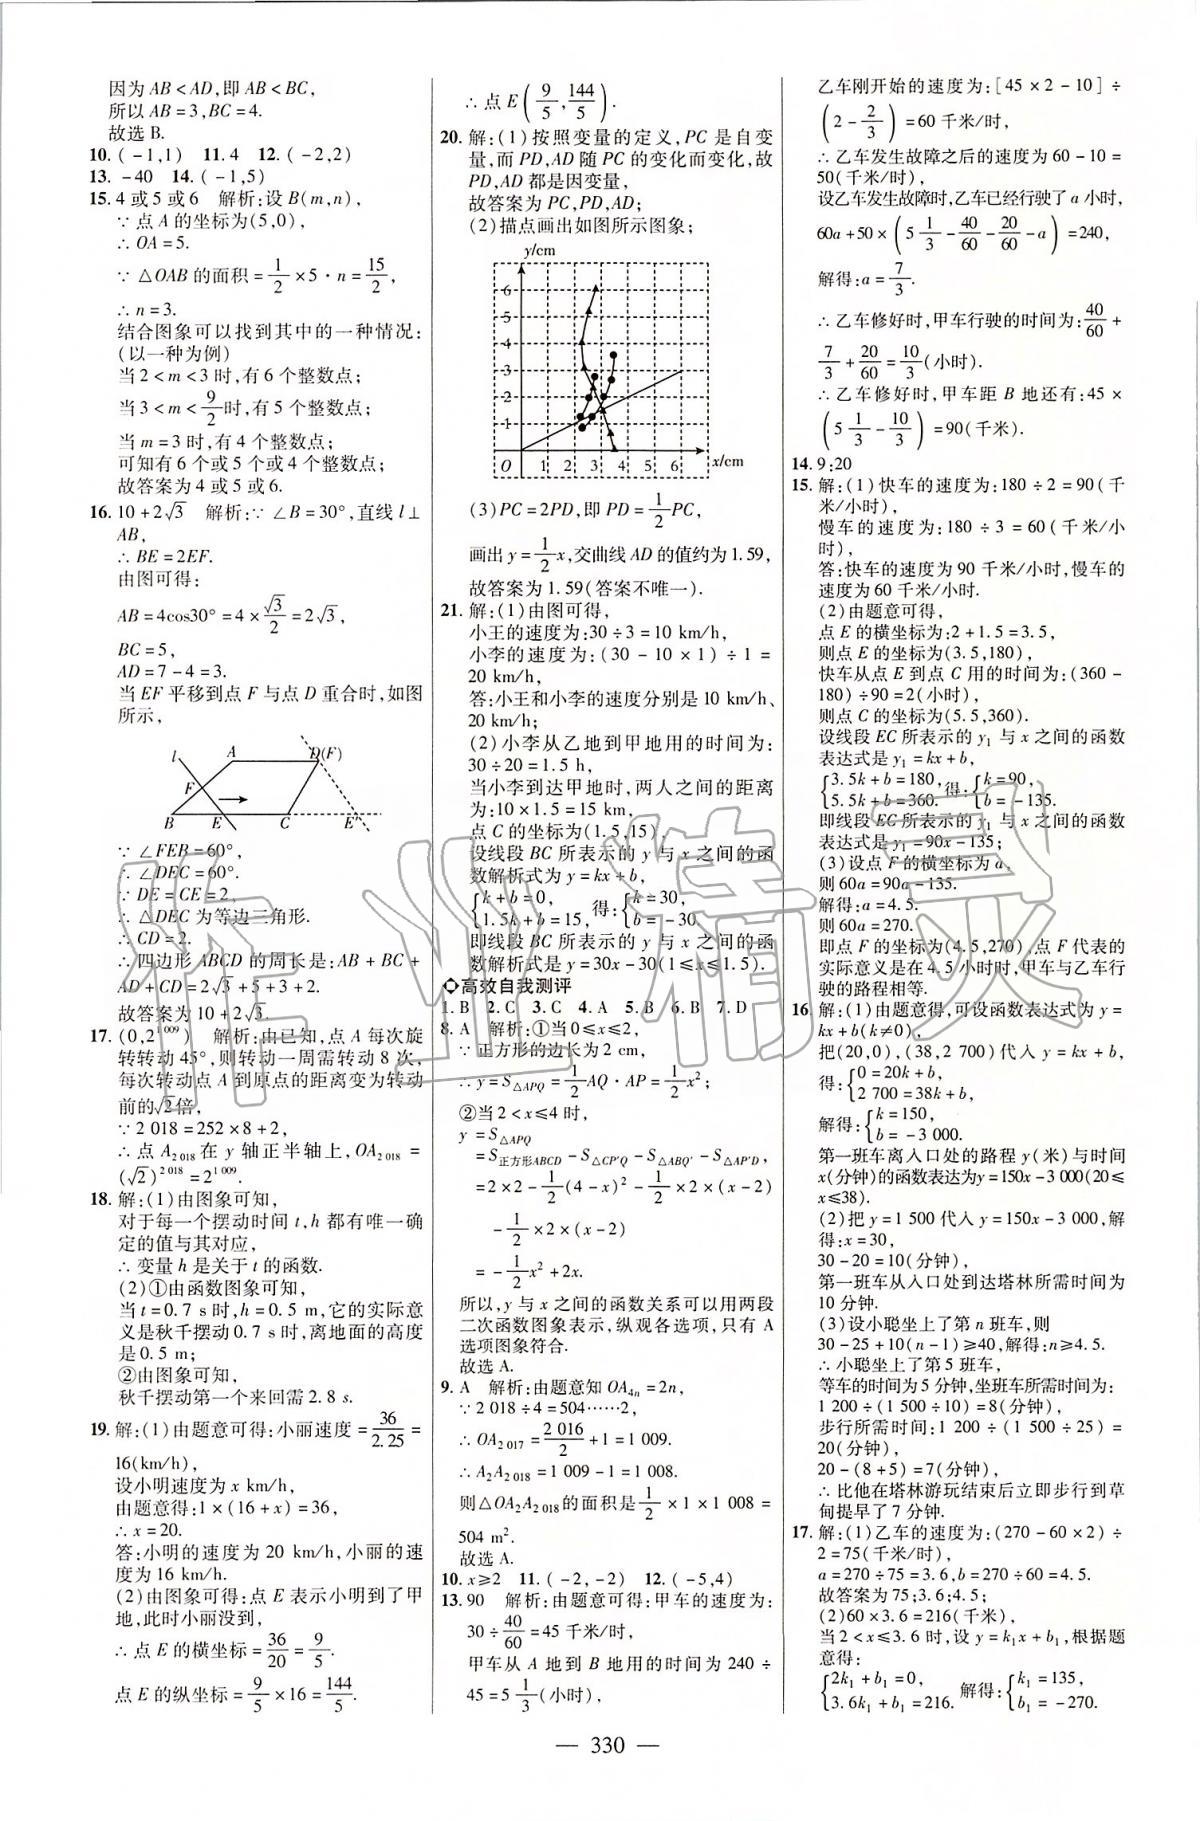 因为 AB<AD,即 AB<BC,
所以 AB=3,BC=4.
故选 B.
10. (-1,1)　11. 4　12. (-2,2)
13. -40　14. (-1,5)
15. 4 或 5 或 6　解析:设 B(m,n),
∵点 A 的坐标为(5,0),
∴OA=5.
∵△OAB 的面积=1/2×5·n=15/2,
∴n=3.
结合图象可以找到其中的一种情况:
(以一种为例)
当 2<m<3 时,有 6 个整数点;
当 3<m<9/2时,有 5 个整数点;
当 m=3 时,有 4 个整数点;
可知有 6 个或 5 个或 4 个整数点;
故答案为 4 或 5 或 6.
16. 10+2√3　解析:∵∠B=30°,直线 l⊥
AB,
∴BE=2EF.
由图可得:
AB=4cos30°=4×√3/2=2√3,
BC=5,
AD=7-4=3.
当 EF 平移到点 F 与点 D 重合时,如图
所示,
l A D(F)
F
B E C E'
∵∠FEB=60°,
∴∠DEC=60°.
∵DE=CE=2,
∴△DEC 为等边三角形.
∴CD=2.
∴四边形 ABCD 的周长是:AB+BC+
AD+CD=2√3+5+3+2.
故答案为 10+2√3.
17. (0,2^1 009)　解析:由已知,点 A 每次旋
转转动 45°,则转动一周需转动 8 次,
每次转动点 A 到原点的距离变为转动
前的√2倍,
∵2 018=252×8+2,
∴点 A₂ ₀₁₈ 在 y 轴正半轴上,OA₂ ₀₁₈=
(√2)^2 018=2^1 009.
18. 解:(1)由图象可知,
对于每一个摆动时间 t,h 都有唯一确
定的值与其对应,
∴变量 h 是关于 t 的函数.
(2)①由函数图象可知,
当 t=0.7 s 时,h=0.5 m,它的实际意
义是秋千摆动 0.7 s 时,离地面的高度
是 0.5 m;
②由图象可知,
秋千摆动第一个来回需 2.8 s.
19. 解:(1)由题意可得:小丽速度=36/2.25=
16(km/h),
设小明速度为 x km/h,
由题意得:1×(16+x)=36,
∴x=20.
答:小明的速度为 20 km/h,小丽的速
度为 16 km/h.
(2)由图象可得:点 E 表示小明到了甲
地,此时小丽没到,
∴点 E 的横坐标=36/20=9/5.
点 E 的纵坐标=9/5×16=144/5.
∴点 E(9/5,144/5).
20. 解:(1)按照变量的定义,PC 是自变
量,而 PD,AD 随 PC 的变化而变化,故
PD,AD 都是因变量,
故答案为 PC,PD,AD;
(2)描点画出如图所示图象;
y/cm
6
5
4
3
2
1
O 1 2 3 4 5 6 x/cm
(3)PC=2PD,即 PD=1/2PC,
画出 y=1/2x,交曲线 AD 的值约为 1.59,
故答案为 1.59(答案不唯一).
21. 解:(1)由图可得,
小王的速度为:30÷3=10 km/h,
小李的速度为:(30-10×1)÷1=
20 km/h,
答:小王和小李的速度分别是 10 km/h、
20 km/h;
(2)小李从乙地到甲地用的时间为:
30÷20=1.5 h,
当小李到达甲地时,两人之间的距离
为:10×1.5=15 km,
点 C 的坐标为(1.5,15),
设线段 BC 所表示的 y 与 x 之间的函
数解析式为 y=kx+b,
{k+b=0, 1.5k+b=15, 得:{k=30, b=-30.
即线段 BC 所表示的 y 与 x 之间的函
数解析式是 y=30x-30(1≤x≤1.5).
高效自我测评
1. B　2. C　3. C　4. A　5. B　6. B　7. D
8. A　解析:①当 0≤x≤2,
∵正方形的边长为 2 cm,
∴y=S△APQ=1/2AQ·AP=1/2x²;
②当 2<x≤4 时,
y=S△APQ
=S正方形ABCD-S△CP'Q-S△ABQ'-S△AP'D,
=2×2-1/2(4-x)²-1/2×2×(x-2)
-1/2×2×(x-2)
=-1/2x²+2x.
所以,y 与 x 之间的函数关系可以用两段
二次函数图象表示,纵观各选项,只有 A
选项图象符合.
故选 A.
9. A　解析:由题意知 OA₄ₙ=2n,
∵2 018÷4=504……2,
∴OA₂ ₀₁₇=2 016/2+1=1 009.
∴A₂A₂ ₀₁₈=1 009-1=1 008.
则△OA₂A₂ ₀₁₈的面积是1/2×1×1 008=
504 m².
故选 A.
10. x≥2　11. (-2,-2)　12. (-5,4)
13. 90　解析:由题意可得:甲车的速度为:
30÷40/60=45 千米/时,
甲车从 A 地到 B 地用的时间为 240÷
45=5 1/3(小时),
乙车刚开始的速度为:[45×2-10]÷
(2-2/3)=60 千米/时,
∴乙车发生故障之后的速度为 60-10=
50(千米/时),
设乙车发生故障时,乙车已经行驶了 a 小时,
60a+50×(5 1/3-40/60-20/60-a)=240,
解得:a=7/3.
∴乙车修好时,甲车行驶的时间为:40/60+
7/3+20/60=10/3(小时).
∴乙车修好时,甲车距 B 地还有:45×
(5 1/3-10/3)=90(千米).
14. 9:20
15. 解:(1)快车的速度为:180÷2=90(千
米/小时),
慢车的速度为:180÷3=60(千米/小
时),
答:快车的速度为 90 千米/小时,慢车的
速度为 60 千米/小时.
(2)由题意可得,
点 E 的横坐标为:2+1.5=3.5,
则点 E 的坐标为(3.5,180),
快车从点 E 到点 C 用的时间为:(360-
180)÷90=2(小时),
则点 C 的坐标为(5.5,360).
设线段 EC 所表示的 y₁ 与 x 之间的函数
表达式是 y₁=kx+b,
{3.5k+b=180, 5.5k+b=360. 得:{k=90, b=-135.
即线段 EC 所表示的 y₁ 与 x 之间的函数
表达式是 y₁=90x-135;
(3)设点 F 的横坐标为 a,
则 60a=90a-135.
解得:a=4.5.
则 60a=270.
即点 F 的坐标为(4.5,270),点 F 代表的
实际意义是在 4.5 小时时,甲车与乙车行
驶的路程相等.
16. 解:(1)由题意得,可设函数表达式为 y=
kx+b(k≠0),
把(20,0),(38,2 700)代入 y=kx+b,
得:{0=20k+b, 2 700=38k+b,
解得:{k=150, b=-3 000.
第一班车离入口处的路程 y(米)与时间
x(分钟)的函数表达为y=150x-3 000(20≤
x≤38).
(2)把 y=1 500 代入 y=150x-3 000,解
得:x=30,
30-20=10(分钟),
第一班车从入口处到达塔林所需时间为
10 分钟.
(3)设小聪坐上了第 n 班车,则
30-25+10(n-1)≥40,解得:n≥4.5.
∴小聪坐上了第 5 班车,
等车的时间为 5 分钟,坐班车所需时间为:
1 200÷(1 500÷10)=8(分钟),
步行所需时间:1 200÷(1 500÷25)=
20(分钟),
20-(8+5)=7(分钟),
∴比他在塔林游玩结束后立即步行到草
甸提早了 7 分钟.
17. 解:(1)乙车的速度为:(270-60×2)÷
2=75(千米/时),
a=270÷75=3.6,b=270÷60=4.5.
故答案为 75;3.6;4.5;
(2)60×3.6=216(千米),
当 2<x≤3.6 时,设 y=k₁x+b₁,根据题
意得:
{2k₁+b₁=0, 3.6k₁+b₁=216. 解得:{k₁=135, b₁=-270.
— 330 —
作业精灵